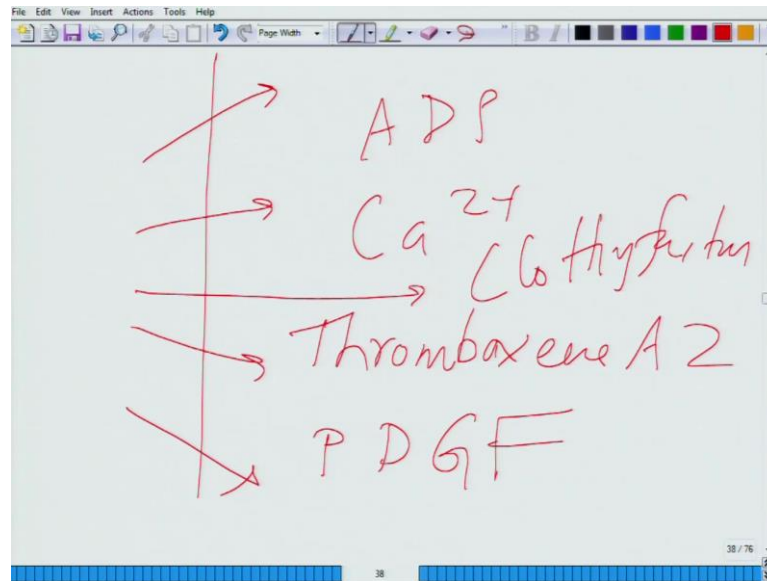 File Edit View Insert Actions Tools Help
Page Width
B I
ADP
Ca 2+
Clotting factors
Thromboxene A2
PDGF
38 / 76
38